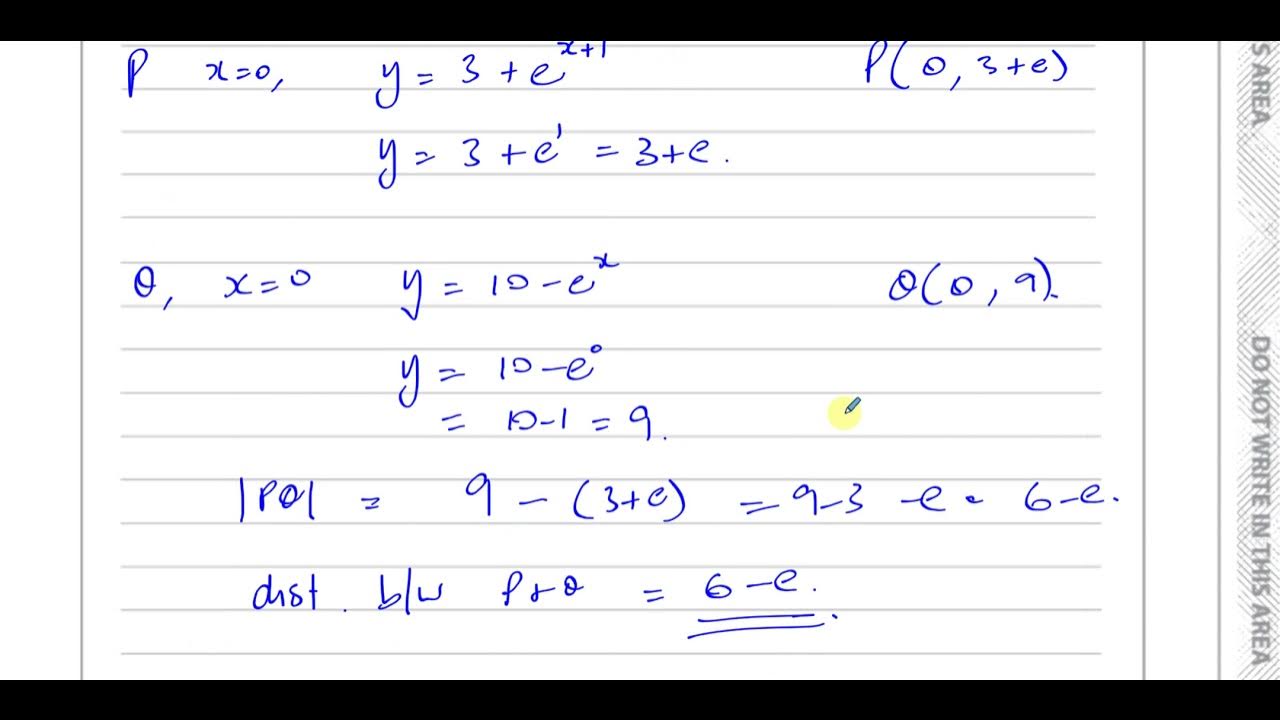 P x=0, y = 3 + e^{x+1} P(0, 3+e)
y = 3 + e^1 = 3+e.
Q, x=0 y = 10-e^x Q(0, 9).
y = 10-e^0
= 10-1 = 9.
|PQ| = 9 - (3+e) = 9-3 -e = 6-e.
dist. b/w P & Q = 6-e.
S AREA
DO NOT WRITE IN THIS AREA